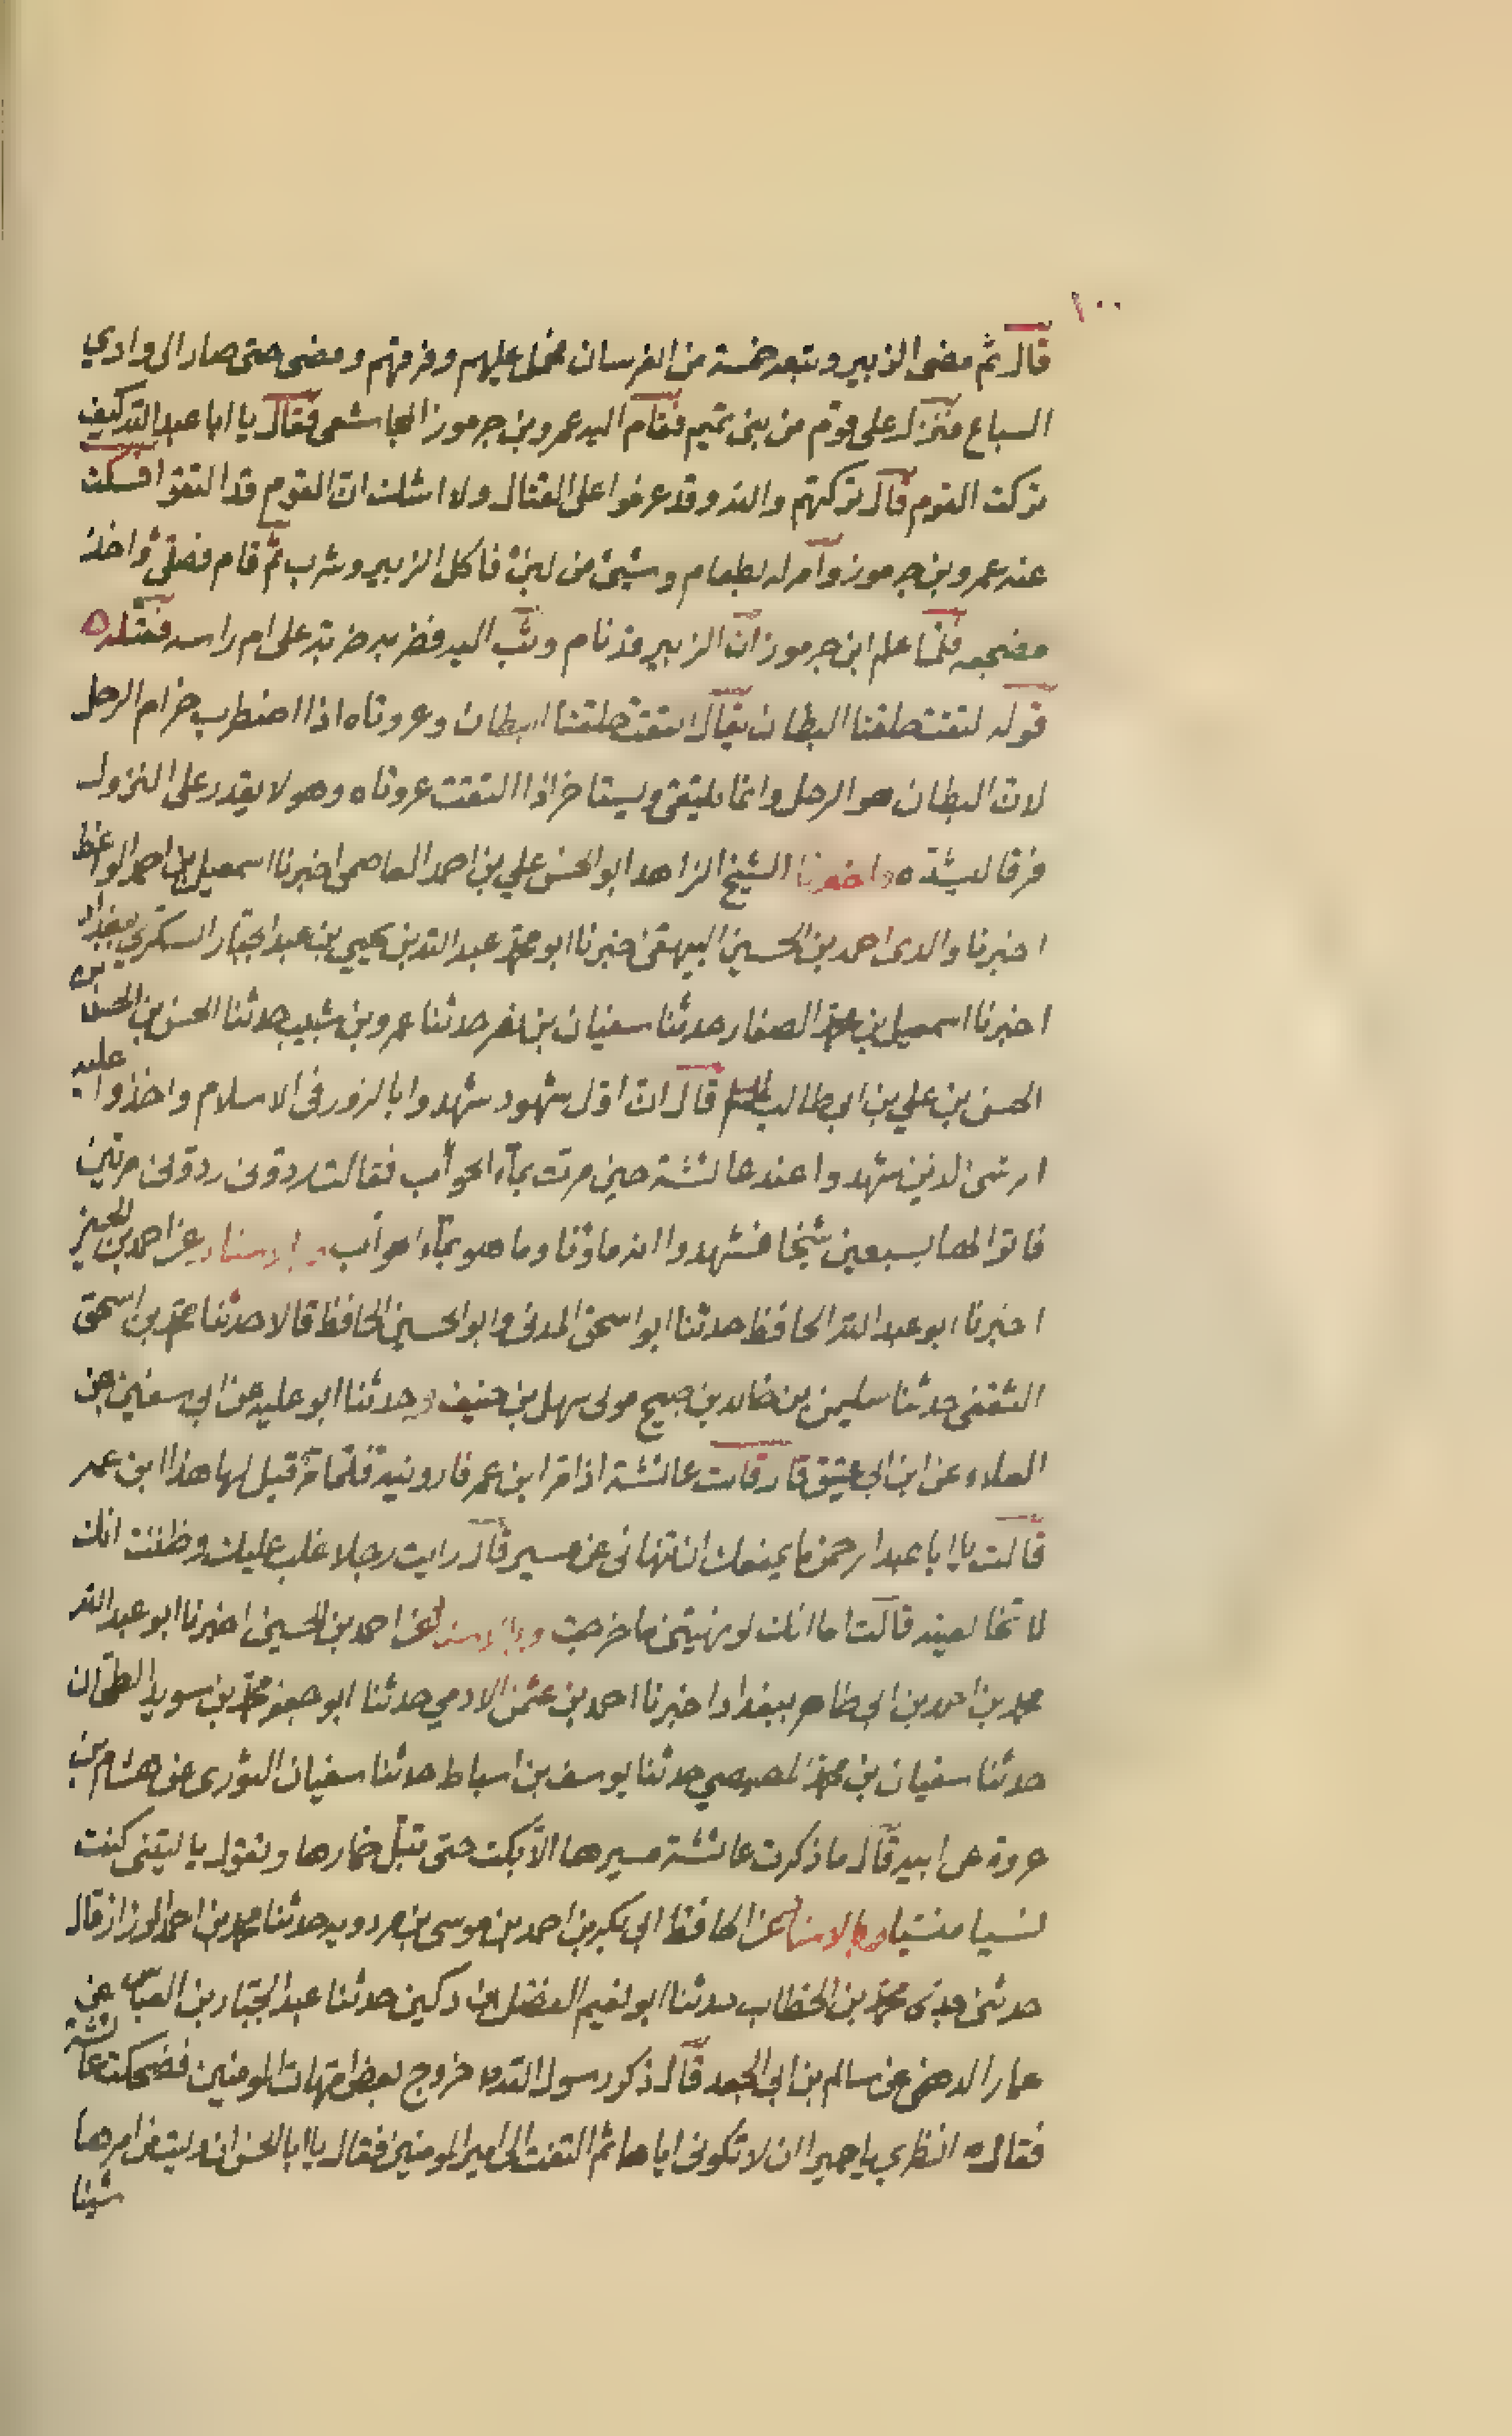 ١٠٠
قال ثم مضى الزبير وتبعه خمسة من الفرسان فحمل عليهم وفرقهم ومضى حتى صار الى وادي
السباع فنزل على قوم من بني تميم فقام اليه عمرو بن جرموز المجاشعي فقال يا ابا عبد الله كيف
تركت القوم قال تركتهم والله وقد عزموا على القتال ولا اشك ان القوم قد التقوا فسكت
عنه عمرو بن جرموز وامر له بطعام وشيئ من لبن فاكل الزبير وشرب ثم قام فصلى واخذ
مضجعه فلما علم ابن جرموز ان الزبير قد نام وثب اليه فضربه ضربة على ام راسه فقتله ٥
قوله لتقت حلقتا البطان يقال التقت حلقتا البطان وعروتاه اذا اضطرب حزام الرحل
لان البطان هو الرحل وانما يلتقى ويستاخر اذا التقت عروتاه وهو لا يقدر على النزول
فرقا لشدة ٥ واخبرنا الشيخ الزاهد ابو الحسن علي بن احمد العاصمي اخبرنا اسمعيل بن احمد الواعظ
اخبرنا والدى احمد بن الحسين البيهقى اخبرنا ابو محمد عبد الله بن يحيى بن عبد الجبار السكري ببغداد
اخبرنا اسمعيل بن محمد الصفار حدثنا سفيان بن حدثنا عمرو بن شبيب حدثنا الحسن بن الحسن بن
الحسن بن علي بن ابي طالب قال ان اول شهود شهدوا بالزور فى الاسلام واخذوا عليه
الرشى الذين شهدوا عند عائشة حين مرت بماء الحوأب فقالت ردونى ردونى مرتين
فاتوا لها بسبعين شيخا فشهدوا انه ماؤنا وما هو بماء الحوأب وبالاسناد عن احمد بن الحسين
اخبرنا ابو عبد الله الحافظ حدثنا ابو اسحق المدنى وابو الحسين الحافظ قالا حدثنا محمد بن اسحق
الثقفى حدثنا سليمن بن خالد بن صبيح مولى سهل بن حنيف وحدثنا ابو عليه عن ابي سفين عن
العلاء عن ابن ابي عتيق قال قالت عائشة اذا مر ابن عمر فارونيه فلما مر قيل لها هذا ابن عمر
قالت يا ابا عبد الرحمن ما يمنعك ان تنهانى عن مسير قال رايت رجلا غلب عليك وظننت انك
لا تخالفينه قالت اما انك لو نهيتنى ما خرجت وبالاسناد عن احمد بن الحسين اخبرنا ابو عبد الله
محمد بن احمد بن ابي طاهر ببغداد اخبرنا احمد بن عثمن الادمي حدثنا ابو جعفر محمد بن سويد الطحان
حدثنا سفيان بن محمد المصيصي حدثنا يوسف بن اسباط حدثنا سفيان الثورى عن هشام بن
عروة عن ابيه قال ما ذكرت عائشة مسيرها الا بكت حتى تبل خمارها وتقول يا ليتنى كنت
نسيا منسيا وبالاسناد عن الحافظ ابي بكر بن احمد بن موسى بن مردويه حدثنا محمد بن احمد قال
حدثنى جدى محمد بن الخطاب حدثنا ابو نعيم الفضل بن دكين حدثنا عبد الجبار بن العباس عن
عمار الدهنى عن سالم بن ابي الجعد قال ذكر رسول الله ص خروج بعض امهات المومنين فضحكت عائشة
فقال انظرى يا حميرا ان لا تكونى اياها ثم التفت الى امير المومنين فقال يا ابا الحسن ان وليت من امرها
شيئا